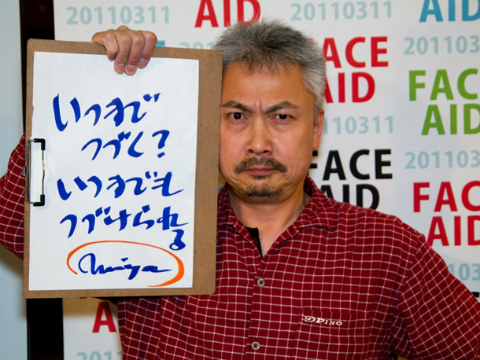 いつまで
つづく?
いつまでも
つづけられ
る
AID
20110311
20110311
AID
FACE
AID
20110311
FACE
AID
20110311
FACE
AID
20110311
FACE
AID
20110311
PINO
AID
20110311